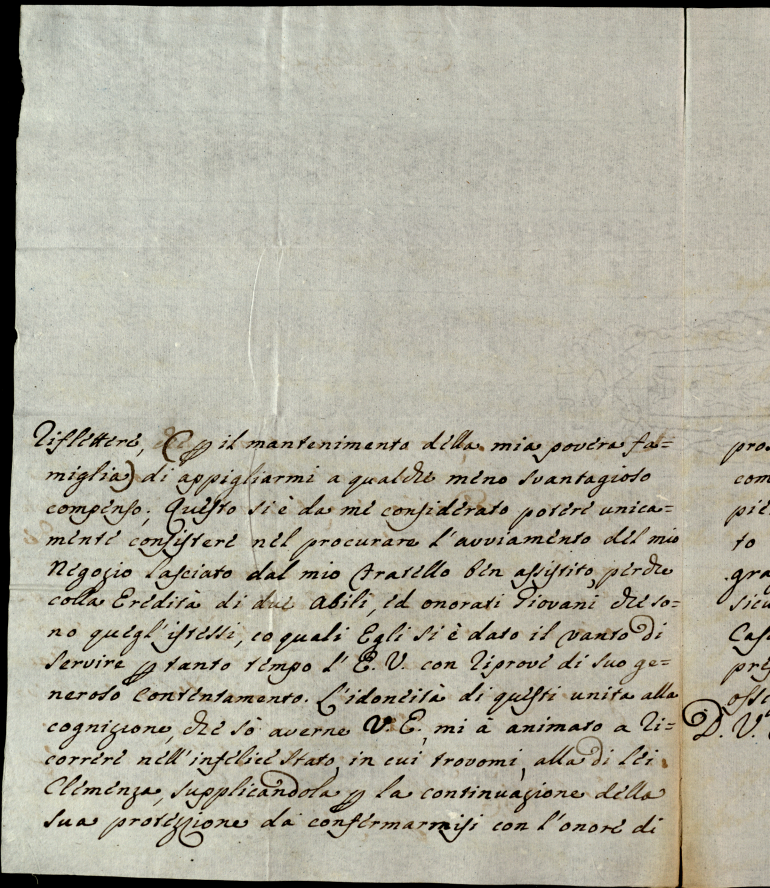 riflettere, (p il mantenimento della mia povera fa=
miglia) di appigliarmi a qualche meno svantagioso
compenso. Questo si è da me considerato potere unica=
mente consistere nel procurare l'avviamento del mio
Negozio lasciato dal mio Fratello ben assistito, perche
colla Eredità di due abili, ed onorati Giovani che so=
no quegl'istessi, co quali Egli si è dato il vanto di
servire p tanto tempo l'E. V. con riprove di suo ge=
neroso Contentamento. L'idoneità di questi unita alla
cognizione, che sò averne V. E., mi à animato a ri=
correre nell'infelice stato, in cui trovomi, alla di lei
Clemenza, supplicandola p la continuazione della
sua protezzione da confermarmisi con l'onore di
pro
com
piè
to
gra
sicu
Cas
pre
osse
D. V.